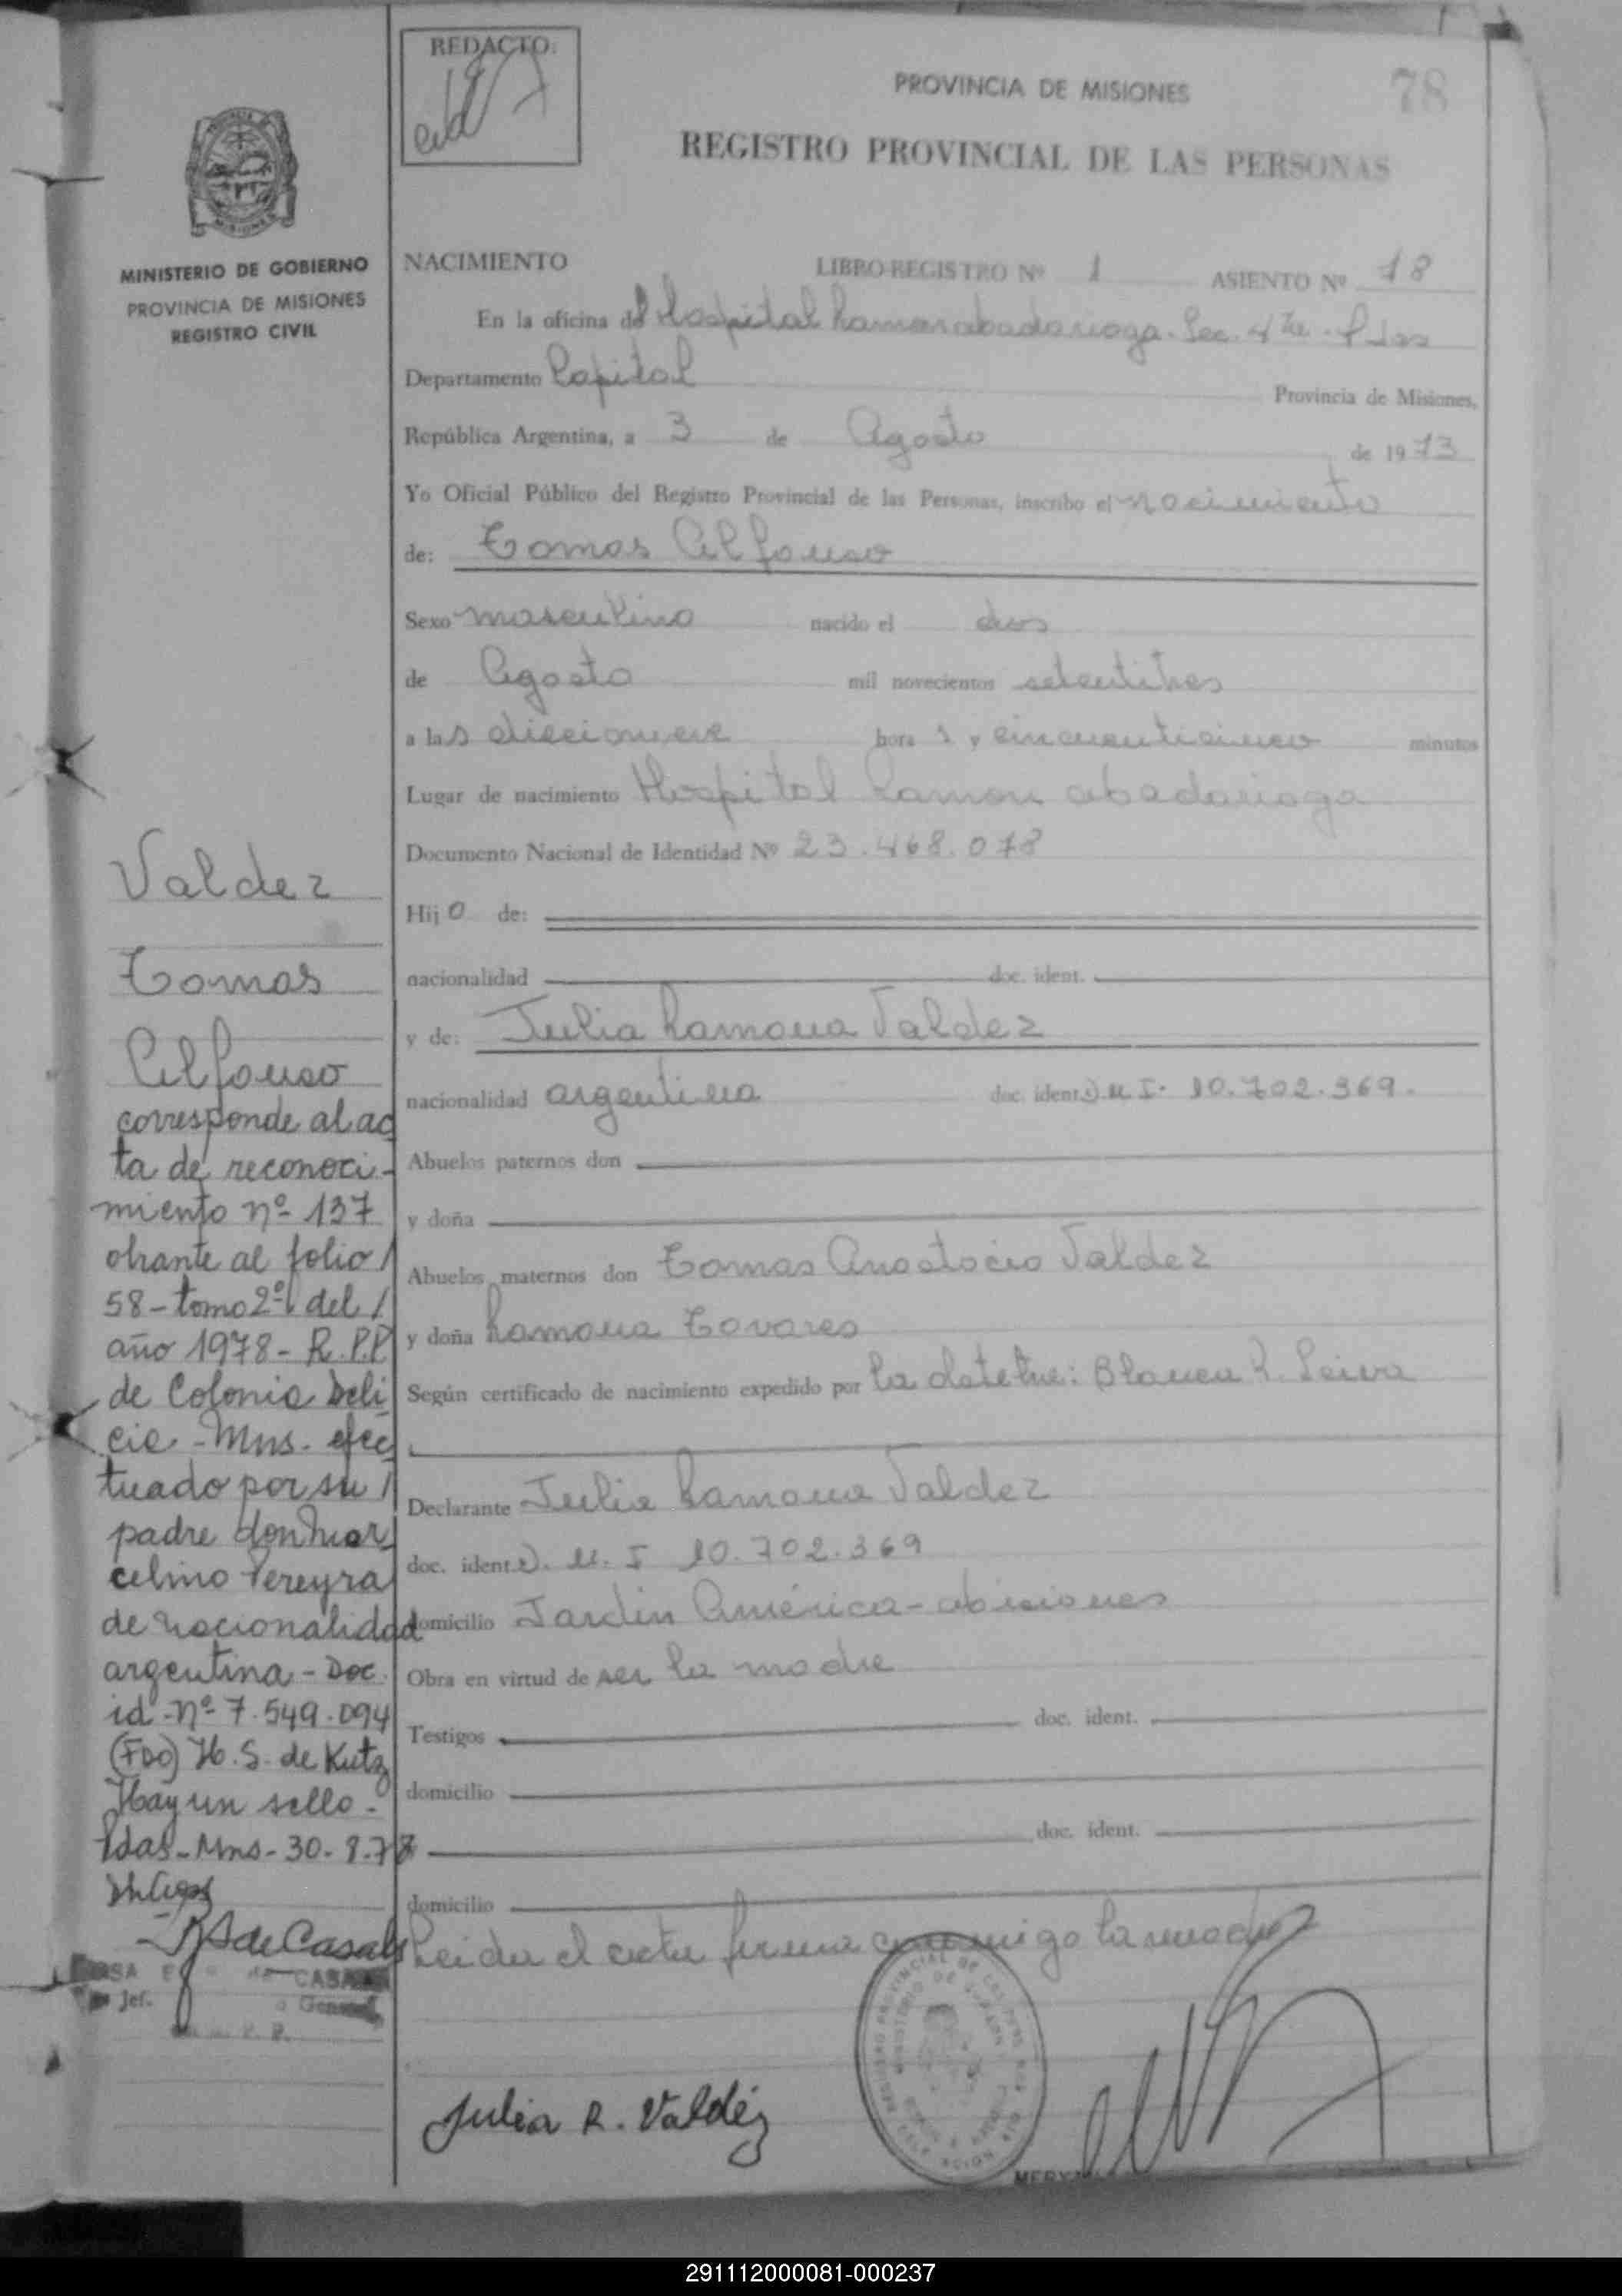 REDACTO:
PROVINCIA DE MISIONES
78
REGISTRO PROVINCIAL DE LAS PERSONAS
MINISTERIO DE GOBIERNO
PROVINCIA DE MISIONES
REGISTRO CIVIL
NACIMIENTO LIBRO-REGISTRO Nº 1 ASIENTO Nº 78
En la oficina del Hospital Ramon Madariaga. Sec. 4ta. Pdas
Departamento Capital Provincia de Misiones,
República Argentina, a 3 de Agosto de 1973
Yo Oficial Público del Registro Provincial de las Personas, inscribo el nacimiento
de: Tomas Alfonso
Sexo masculino nacido el dos
de Agosto mil novecientos setentitres
a las diecinueve hora s y cincuenticinco minutos
Lugar de nacimiento Hospital Ramon Madariaga
Documento Nacional de Identidad Nº 23.468.078
Hijo de:
nacionalidad doc. ident.
y de: Julia Ramona Valdez
nacionalidad argentina doc. ident. D.N.I. 10.702.369.
Abuelos paternos don
y doña
Abuelos maternos don Tomas Anastacio Valdez
y doña Ramona Tovares
Según certificado de nacimiento expedido por la obstetre: Blanca R. Leiva
Declarante Julia Ramona Valdez
doc. ident. D.N.I 10.702.369
domicilio Jardin América - Misiones
Obra en virtud de ser la madre
Testigos doc. ident.
domicilio
doc. ident.
domicilio
Leida el acta firma conmigo la madre
Julia R. Valdéz
Valdez
Tomas
Alfonso
corresponde al ac
ta de reconoci-
miento nº 137
obrante al folio /
58 - tomo 2º del /
año 1978 - R.P.P.
de Colonia Deli
cia - Mns. efec
tuado por su /
padre don Mar
celino Pereyra
de nacionalidad
argentina - Doc.
id - nº 7.549.094
(FDO) H. S. de Kutz
Hay un sello -
Pdas - Mns - 30 - 8 - 78
de Casals
de CASALS
Jef.
291112000081-000237